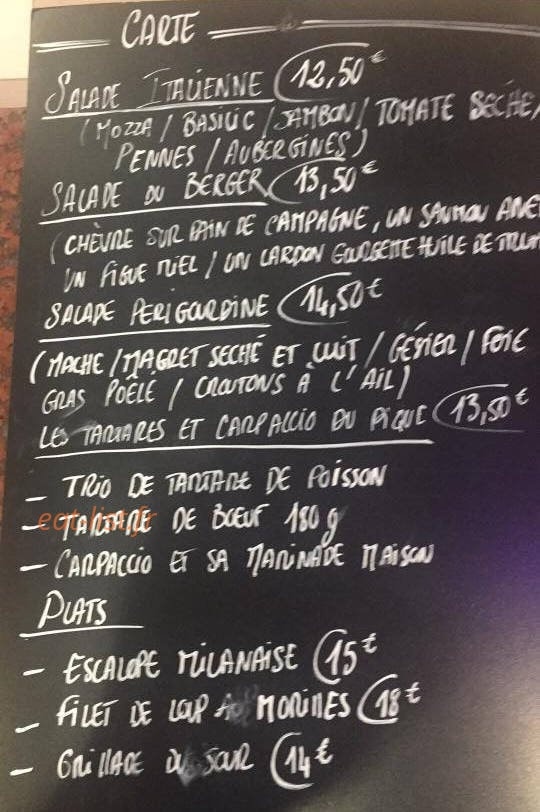 CARTE
SALADE ITALIENNE 12,50€
(MOZZA / BASILIC / JAMBON / TOMATE SECHÉE /
PENNES / AUBERGINES)
SALADE DU BERGER 13,50€
(CHÈVRE SUR PAIN DE CAMPAGNE, UN SAUMON ANE
UN FIGUE MIEL / UN LARDON COURGETTE HUILE DE
SALADE PERIGOURDINE 14,50€
(MACHE / MAGRET SECHÉ ET CUIT / GÉSIER / FOIE
GRAS POÊLÉ / CROUTONS À L'AIL)
LES TARTARES ET CARPACCIO DU PIQUE 13,50€
- TRIO DE TARTARE DE POISSON
- TARTARE DE BOEUF 180 g
- CARPACCIO ET SA MARINADE MAISON
eat-list.fr
PLATS
- ESCALOPE MILANAISE 15€
- FILET DE LOUP MORILLES 18€
- GRILLADE DU JOUR 14€